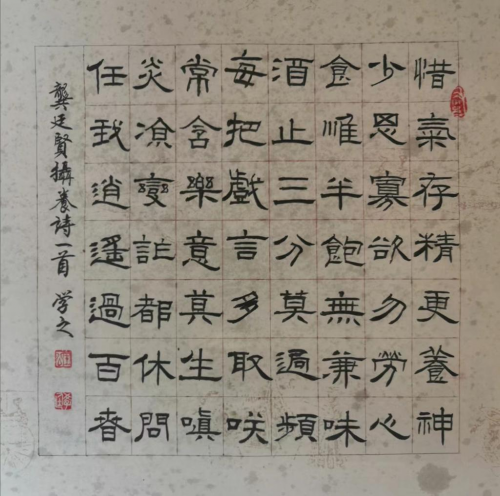 惜氣存精更養神
少思寡欲勿勞心
食惟半飽無兼味
酒止三分莫過頻
每把戲言多取咲
常含樂意莫生嗔
炎凉變詐都休問
任我逍遙過百春
龔廷賢攝養詩一首 学之